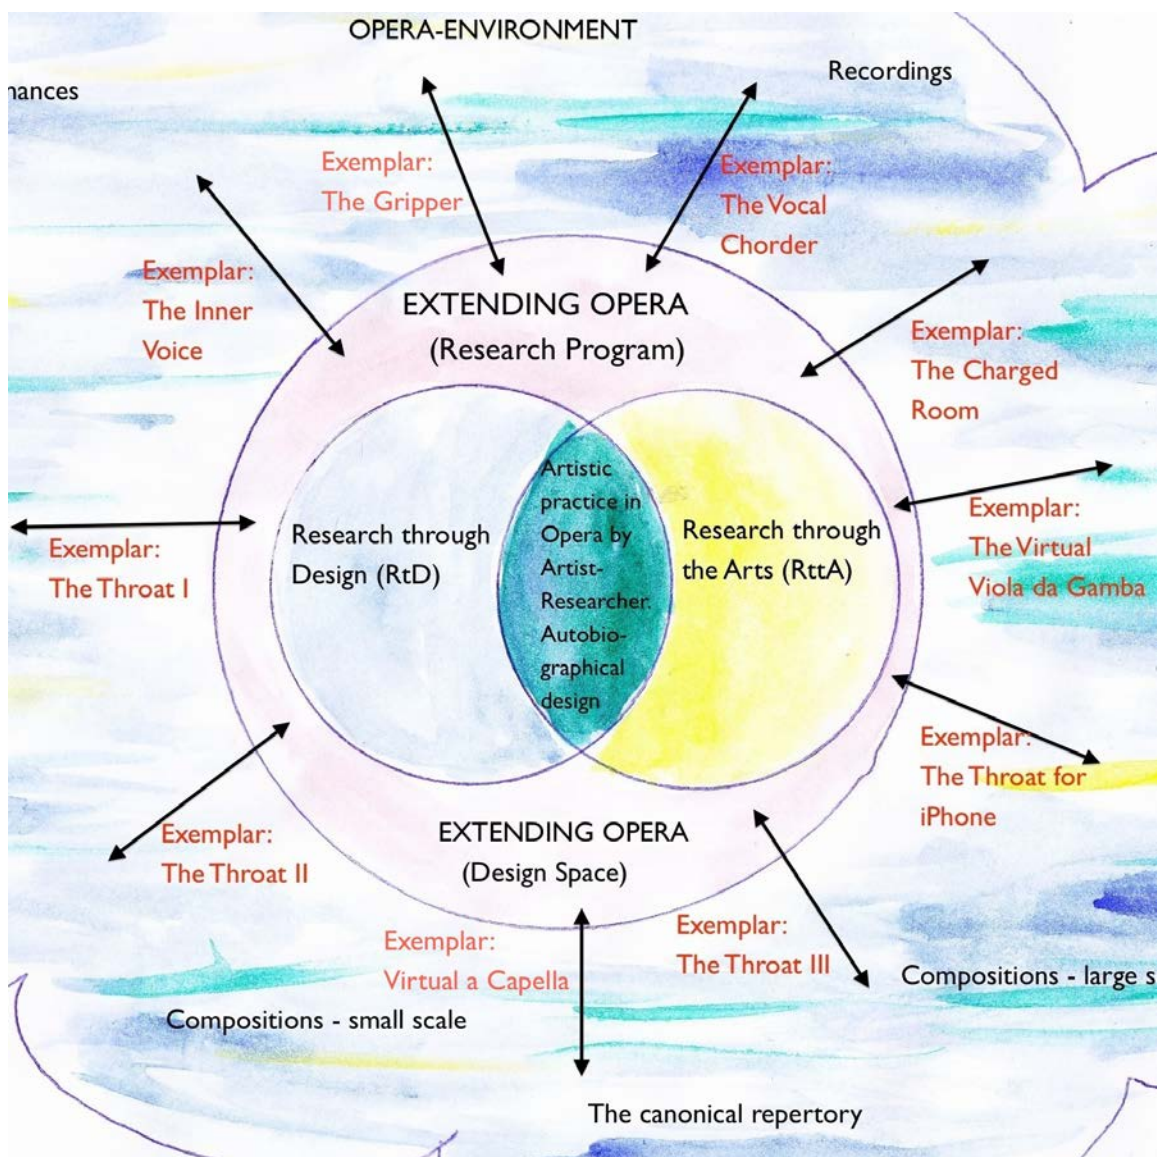 OPERA-ENVIRONMENT
nances
Recordings
Exemplar:
The Gripper
Exemplar:
The Vocal
Chorder
Exemplar:
The Inner
Voice
EXTENDING OPERA
(Research Program)
Exemplar:
The Charged
Room
Artistic
practice in
Opera by
Artist-
Researcher.
Autobio-
graphical
design
Research through
Design (RtD)
Research through
the Arts (RttA)
Exemplar:
The Throat I
Exemplar:
The Virtual
Viola da Gamba
Exemplar:
The Throat for
iPhone
Exemplar:
The Throat II
EXTENDING OPERA
(Design Space)
Exemplar:
Virtual a Capella
Exemplar:
The Throat III
Compositions - large s
Compositions - small scale
The canonical repertory